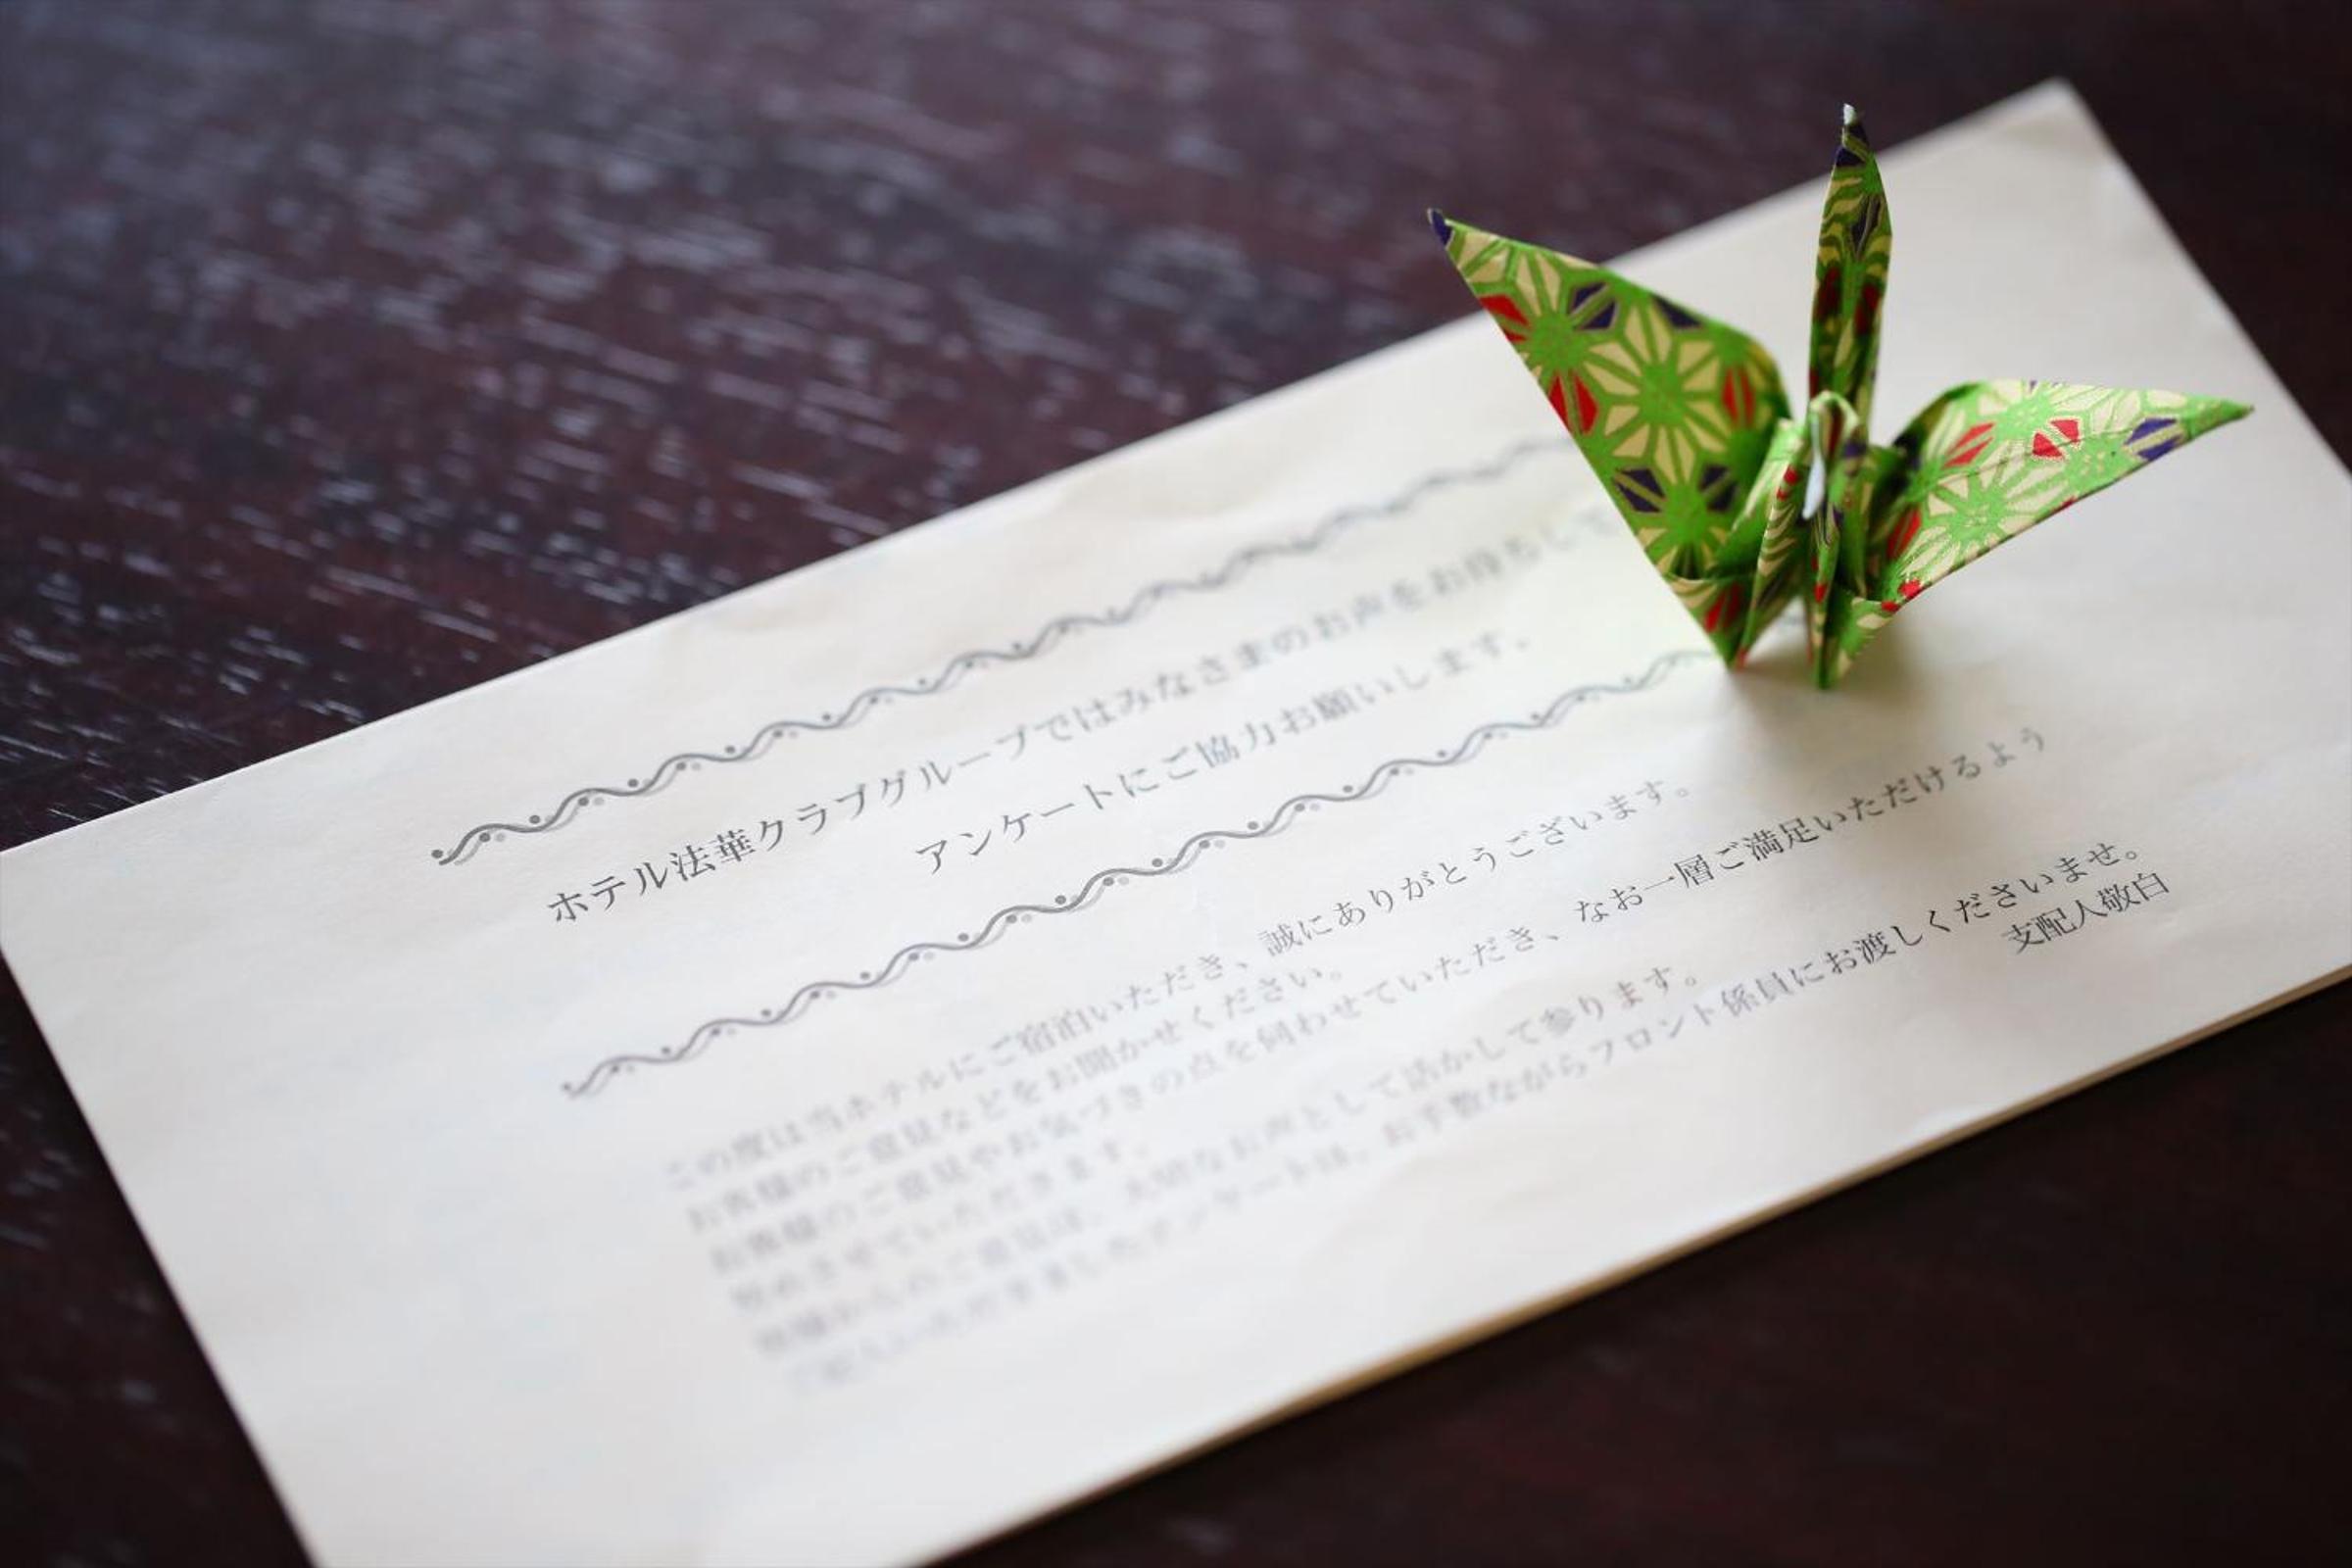 ホテル法華クラブグループではみなさまのお声をお待ちして
アンケートにご協力お願いします。
この度は当ホテルにご宿泊いただき、誠にありがとうございます。
お客様のご意見などをお聞かせください。
お客様のご意見やお気づきの点を伺わせていただき、なお一層ご満足いただけるよう
努めさせていただきます。
皆様からのご意見は、大切なお声として活かして参ります。
ご記入いただきましたアンケートは、お手数ながらフロント係員にお渡しくださいませ。
支配人敬白